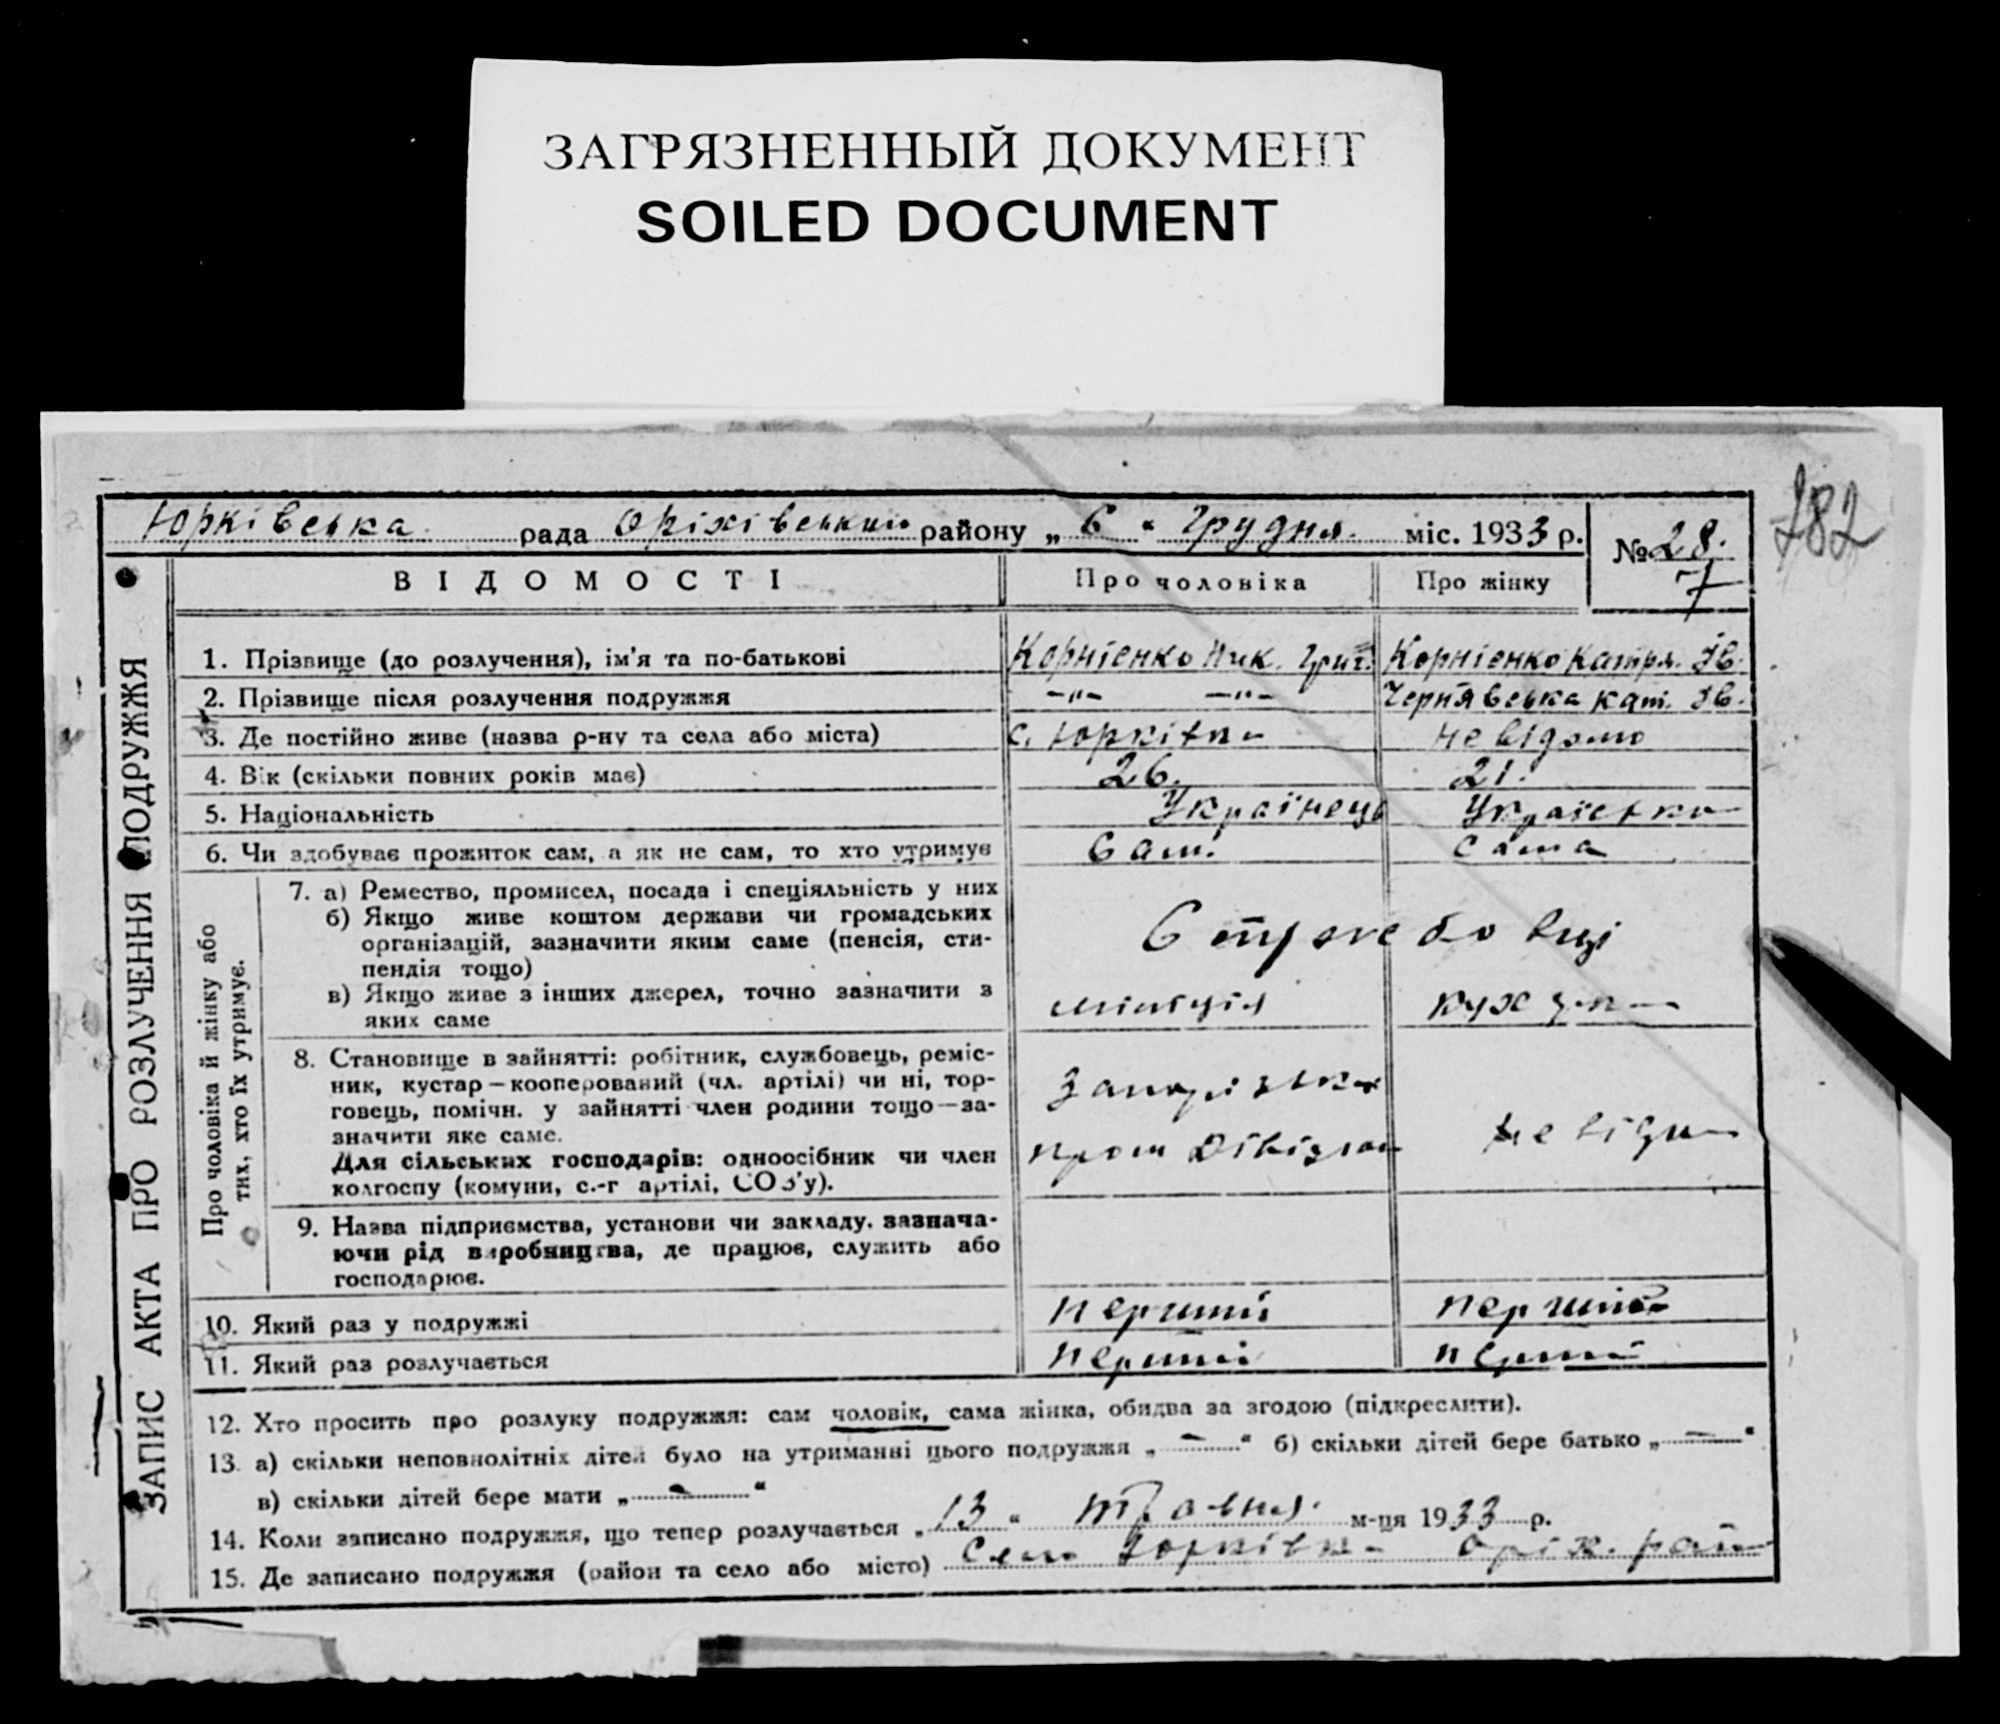 ЗАГРЯЗНЕННЫЙ ДОКУМЕНТ
SOILED DOCUMENT
782
Юрківська рада Оріхівський району „ 6 “ Грудня. міс. 1933 р. № 28.
7
ВІДОМОСТІ Про чоловіка Про жінку
ЗАПИС АКТА ПРО РОЗЛУЧЕННЯ ПОДРУЖЖЯ
1. Прізвище (до розлучення), ім'я та по-батькові Корнієнко Ник. Григ. Корнієнко Катря. Ів.
2. Прізвище після розлучення подружжя –"– –"– Чернявська Кат. Ів.
3. Де постійно живе (назва р-ну та села або міста) с. Юрківка Невідомо
4. Вік (скільки повних років має) 26. 21.
5. Національність Українець Українка
6. Чи здобуває прожиток сам, а як не сам, то хто утримує Сам. Сама
Про чоловіка й жінку або тих, хто їх утримує.
7. а) Ремество, промисел, посада і спеціяльність у них
б) Якщо живе коштом держави чи громадських
організацій, зазначити яким саме (пенсія, сти-
пендія тощо)
в) Якщо живе з інших джерел, точно зазначити з
яких саме
Служебовці
міліція
8. Становище в зайнятті: робітник, службовець, реміс-
ник, кустар—кооперований (чл. артілі) чи ні, тор-
говець, помічн. у зайнятті член родини тощо—за-
значити яке саме.
Для сільських господарів: одноосібник чи член
колгоспу (комуни, с.-г артілі, СОЗ'у).
Запорізька
Дівізіон
9. Назва підприємства, установи чи закладу, зазнача-
ючи рід виробництва, де працює, служить або
господарює.
10. Який раз у подружжі перший перший
11. Який раз розлучається перший перший
12. Хто просить про розлуку подружжя: сам чоловік, сама жінка, обидва за згодою (підкреслити).
13. а) скільки неповнолітніх дітей було на утриманні цього подружжя „ — “ б) скільки дітей бере батько „ — “
в) скільки дітей бере мати „ — “
14. Коли записано подружжя, що тепер розлучається „ 13 “ Травня. м-ця 1933 р.
15. Де записано подружжя (район та село або місто) Село Юрківка Оріх. рай